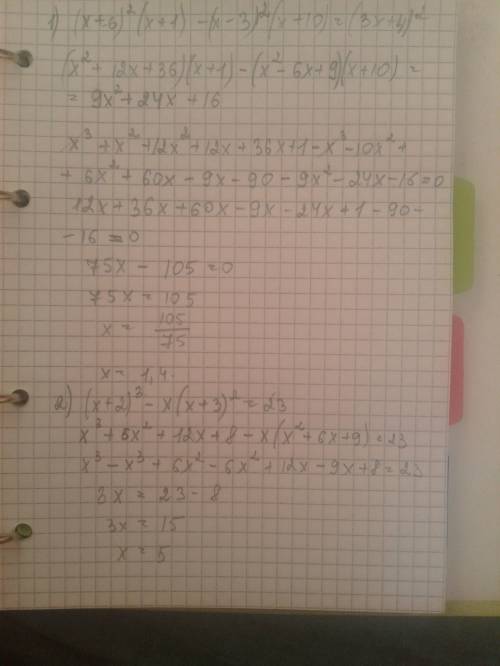 1) (x+6)²(x+1) - (x-3)²(x+10) = (3x+4)²
(x²+12x+36)(x+1) - (x²-6x+9)(x+10) =
= 9x²+24x+16
x³+x²+12x²+12x+36x+1-x³-10x²+
+6x²+60x-9x-90-9x²-24x-16=0
12x+36x+60x-9x-24x+1-90-
-16=0
75x-105=0
75x=105
x=105/75
x=1,4
2) (x+2)³-x(x+3)²=23
x³+6x²+12x+8-x(x²+6x+9)=23
x³-x³+6x²-6x²+12x-9x+8=23
3x=23-8
3x=15
x=5